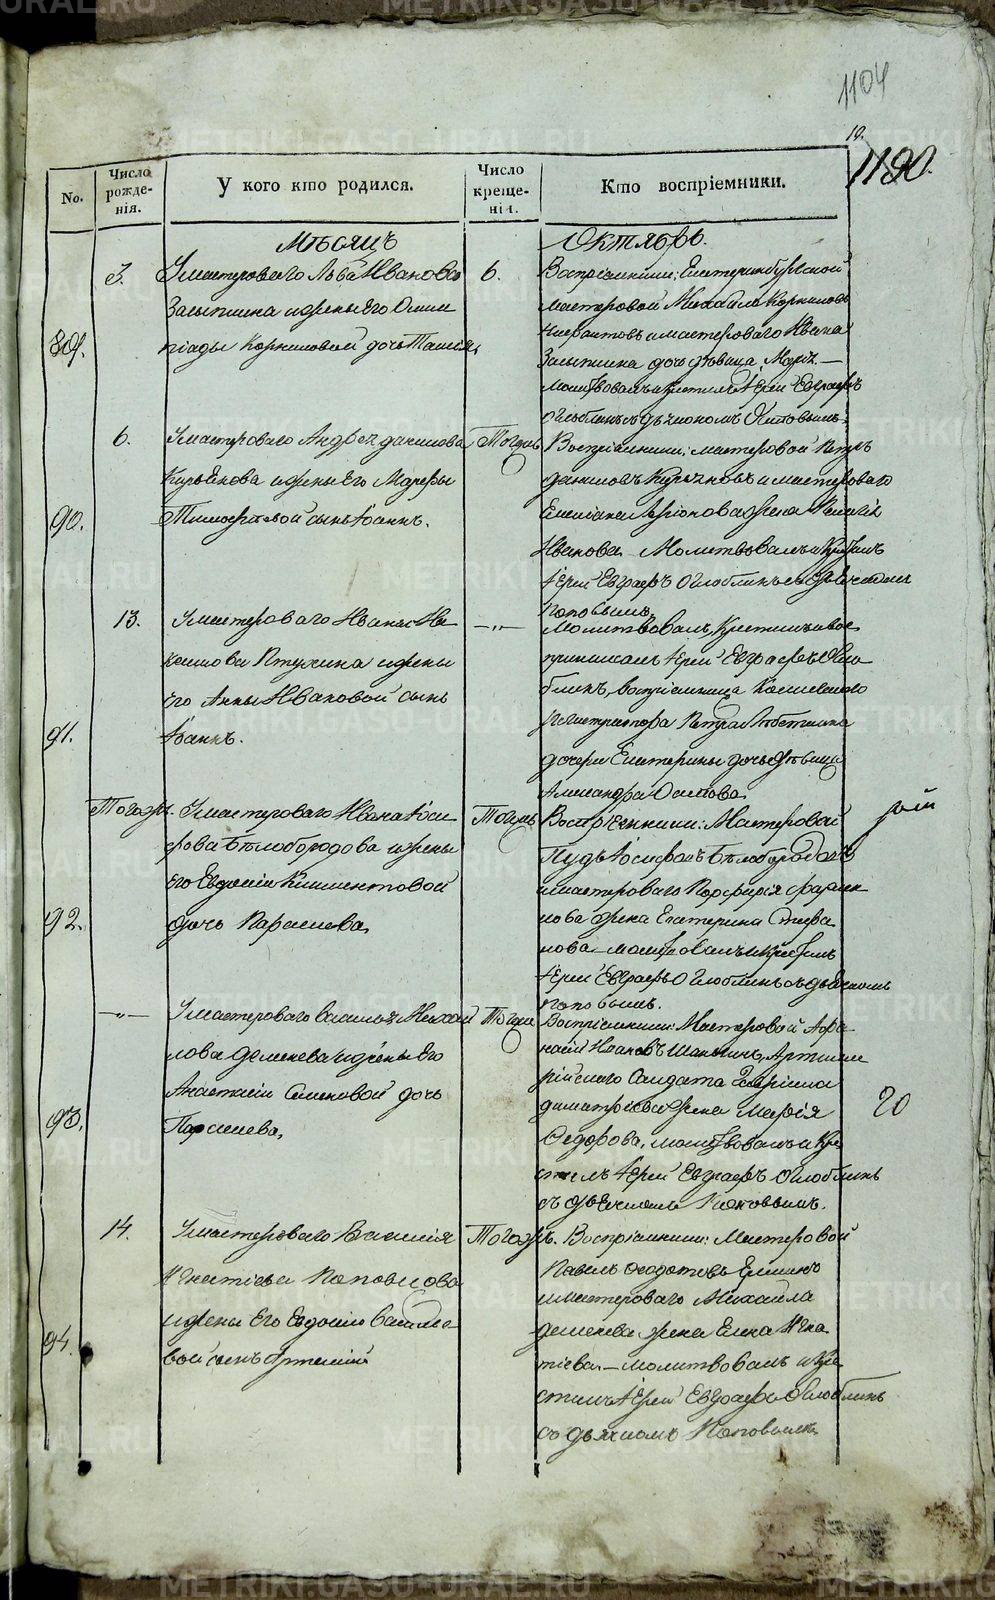 1104
10.
1190.
No.
Число рожде-
нія.
У кого кто родился.
Число креще-
нія.
Кто воспріемники.
Мѣсяцъ
Октябрь.
89.
3.
У мастероваго Льва Иванова
Засыпкина и жены Его Олим
піады Корниловой дочь Таисія
6.
Воспріемники: Екатеринбургской
мастеровой Михайло Корниловъ
и мастероваго Ивана
Засыпкина дочь дѣвица
Молитвовалъ и крестилъ Іерей Евграфъ
Оглоблинъ съ дьячкомъ
90.
6.
У мастероваго Андрея Данилова
Кирьякова и жены Его Марфы
Тимофеевой сынъ Іоаннъ.
Тогожъ
Воспріемники: мастеровой Петръ
Даниловъ Кирьяковъ и мастероваго
Емельяна жена
Иванова Молитвовалъ и Крестилъ
Іерей Евграфъ Оглоблинъ съ дьячкомъ
Поповымъ.
91.
13.
У мастероваго Ивана
Птухина и жены
его Анны Ивановой сынъ
Іоаннъ.
—„—
Молитвовалъ, Крестилъ и вос
принималъ Іерей Евграфъ Огло
блинъ, воспріемница Колежскаго
регистратора Петра
дочери Екатерины дочь дѣвица
Александра Осипова.
92.
Тогожъ.
У мастероваго Ивана Іоси
фова Бѣлобородова и жены
Его Евдокіи Климентовой
дочь Параскева
Тогожъ
Воспріемники: Мастеровой
Пудъ Іосифовъ Бѣлобородовъ
и мастероваго Порфирія
жена Екатерина Стефа
нова молитвовалъ и Крестилъ
Іерей Евграфъ Оглоблинъ съ дьячкомъ
Поповымъ.
93.
—„—
У мастероваго Василья Михай
лова Деменева и жены Его
Анастасіи Семеновой дочь
Параскева,
Тогожъ
Воспріемники: Мастеровой Афа
насій Ивановъ Шаньгинъ, Артилле
рійскаго Солдата Гавріила
Димитріева жена Марія
Федорова, молитвовалъ и Кре
стилъ Іерей Евграфъ Оглоблинъ
съ дьячкомъ Поповымъ.
20
94.
14.
У мастероваго Василія
Игнатіева
и жены Его Евдокіи Василье
вой сынъ Артемій
Тогожъ.
Воспріемники: Мастеровой
Павелъ Федотовъ
и мастероваго Михайла
Деменева жена Елена Игна
тіева. — молитвовалъ и Кре
стилъ Іерей Евграфъ Оглоблинъ
съ дьячкомъ Поповымъ.
METRIKI.GASO-URAL.RU